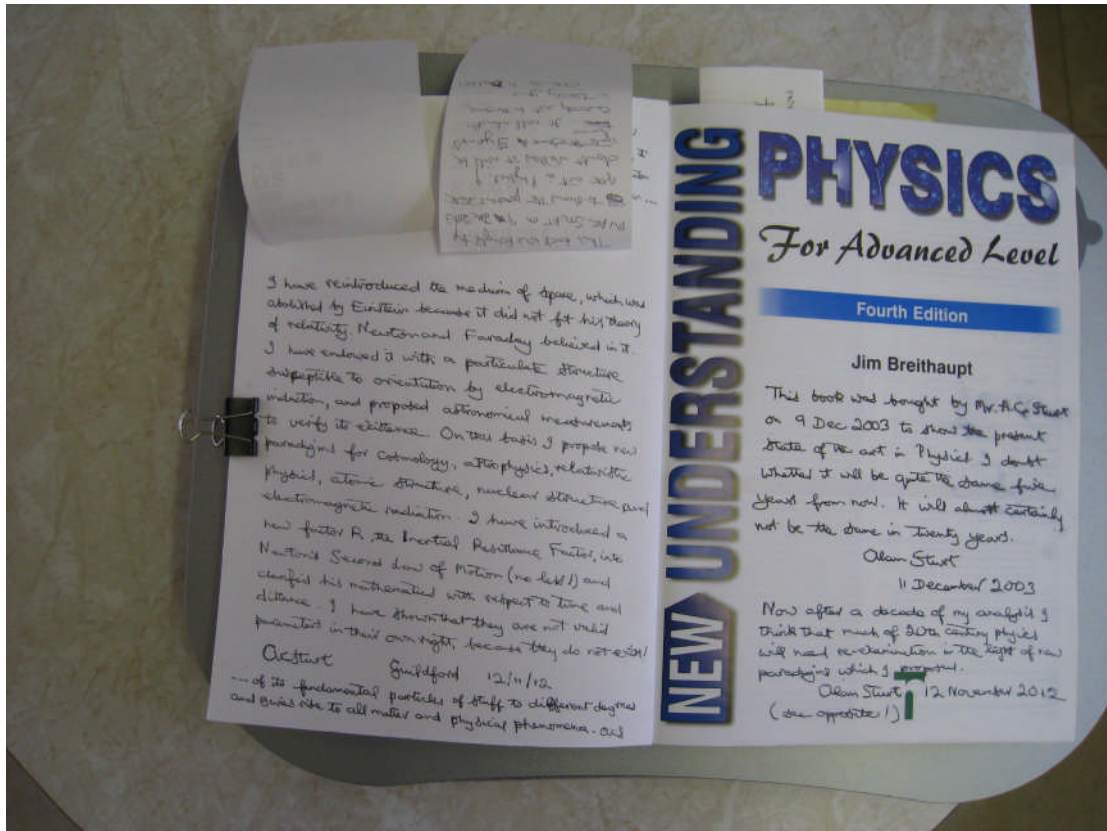 I have reintroduced the medium of space, which was
abolished by Einstein because it did not fit his theory
of relativity. Newton and Faraday believed in it.
I have endowed it with a particulate structure
susceptible to orientation by electromagnetic
induction, and proposed astronomical measurements
to verify its existence. On this basis I propose new
paradigms for cosmology, astrophysics, relativistic
physics, atomic structure, nuclear structure and
electromagnetic radiation. I have introduced a
new factor R, the Inertial Resistance Factor, into
Newton's Second Law of Motion (no less!) and
clarified his mathematics with respect to time and
distance. I have shown that they are not valid
parameters in their own right, because they do not exist!
ACSturt Guildford 12/11/12
... of its fundamental particles of stuff to different degrees
and gives rise to all matter and physical phenomena. ACS
NEW UNDERSTANDING
PHYSICS
For Advanced Level
Fourth Edition
Jim Breithaupt
This book was bought by Mr. A.C. Sturt
on 9 Dec 2003 to show the present
state of the art in Physics. I doubt
whether it will be quite the same five
years from now. It will almost certainly
not be the same in twenty years.
Alan Sturt
11 December 2003
Now after a decade of my analysis I
think that much of 20th century physics
will need re-examination in the light of new
paradigms which I
Alan Sturt 12 November 2012
(see opposite!)
This book was bought by
Mr AC Sturt on 9 Dec 2003
to show the present state